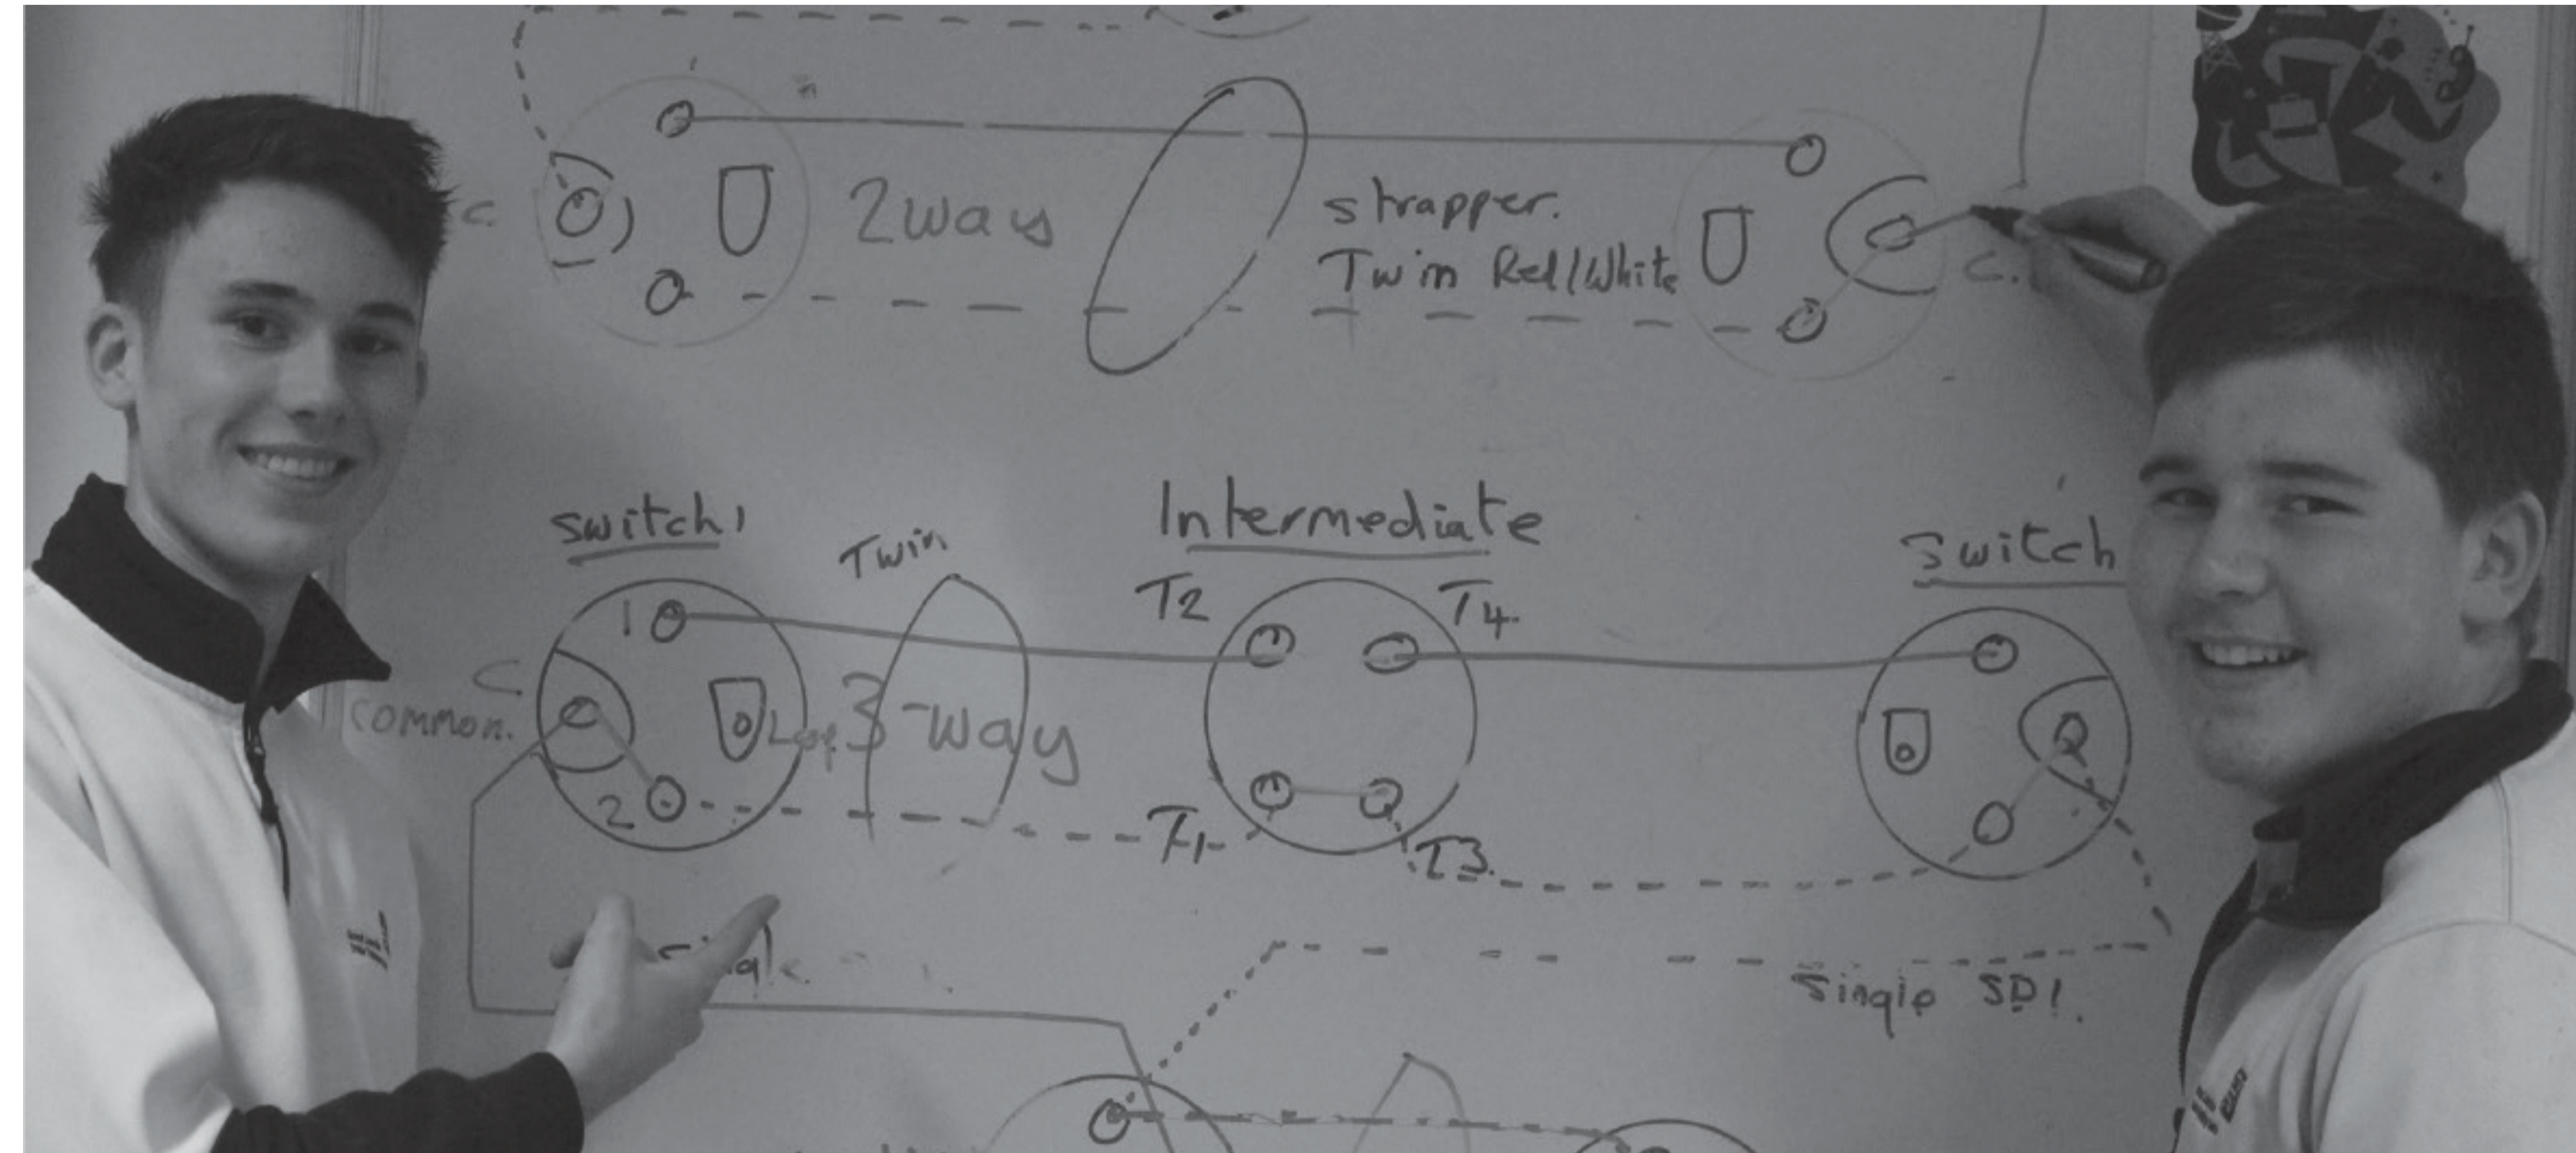 C.
2ways
strapper.
Twin Red/White
C.
switch 1
Twin
Intermediate
switch
T2
T4.
1
C
common.
Loop
3-way
2
T1
T3.
Single SD1.